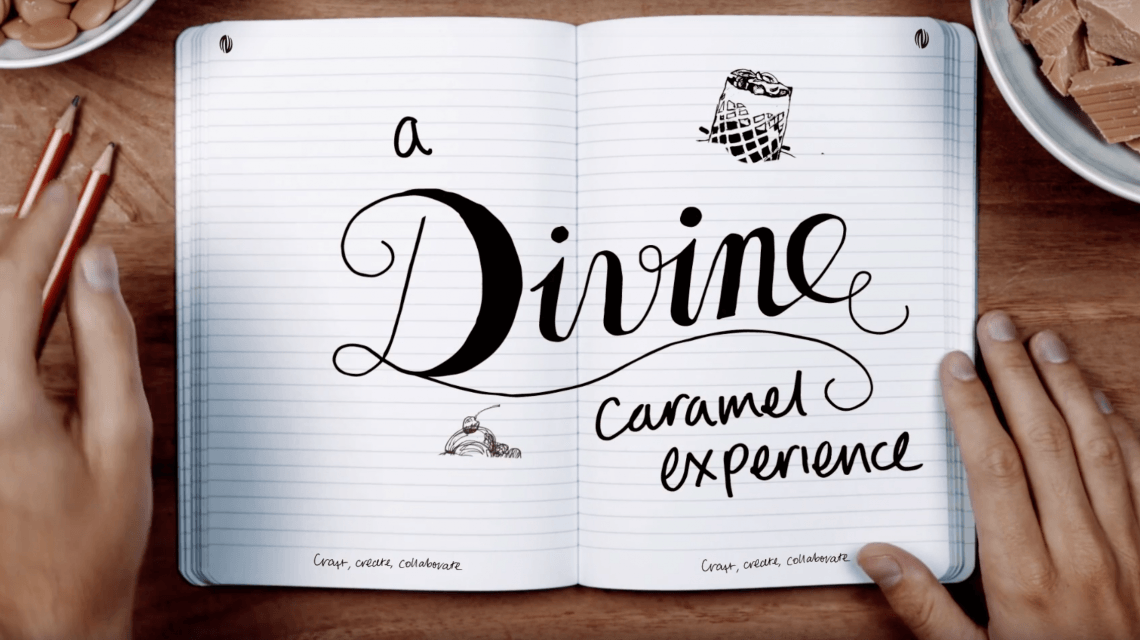 a
Divine
caramel
experience
Craft, create, collaborate
Craft, create, collaborate